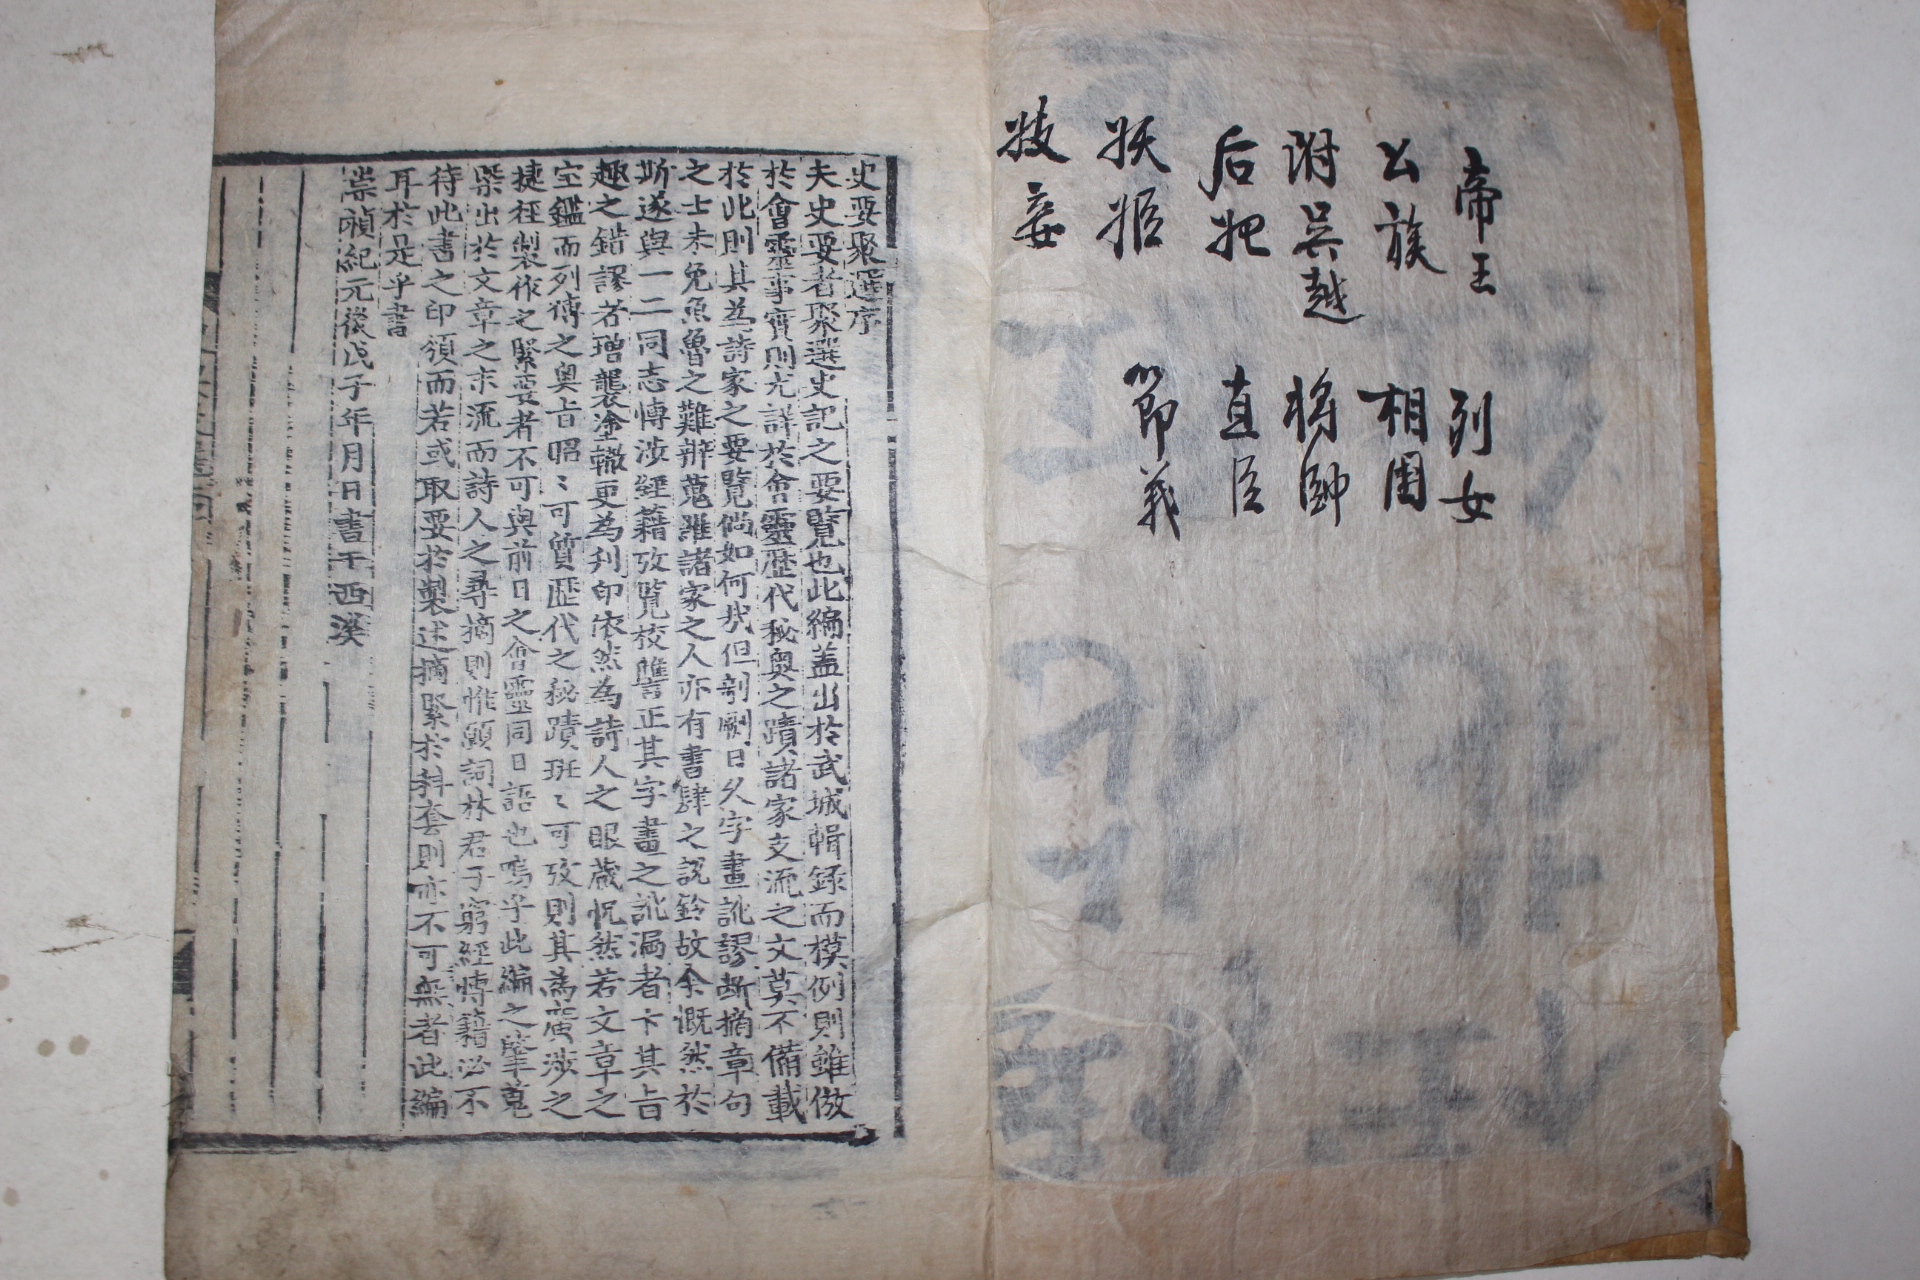 帝王
公族
附吳越
后妃
妖姬
妓妾
列女
相国
将帥
直臣
節義
史要聚選序
夫史要者聚選史記之要覽也此編盖出於武城輯錄而模例則雖倣
於會靈事實則尤詳於會靈歷代秘奧之蹟諸家支流之文莫不備載
於此則其爲詩家之要覽倘如何哉但剞劂日久字畫訛謬断摘章句
之士未免魚魯之難辨蒐羅諸家之人亦有書肆之說鈴故余慨然於
斯遂與一二同志愽涉經籍攷覧校讐正其字畫之訛漏者卞其旨
趣之錯謬若璔襲塗轍更為刋印依然為詩人之眼蔵怳然若文章之
宝鑑而列傳之奧旨昭〻可質歷代之秘蹟班〻可攷則其為廣涉之
捷徑製作之緊要者不可與前日之會靈同日語也嗚乎此編之肇蒐
槩出於文章之末流而詩人之尋摘則惟願詞林君子窮經愽籍必不
待此書之印頒而若或取要於製述摘緊於科套則亦不可無者此編
耳於是乎書
崇禎紀元後戊子年月日書于西溪